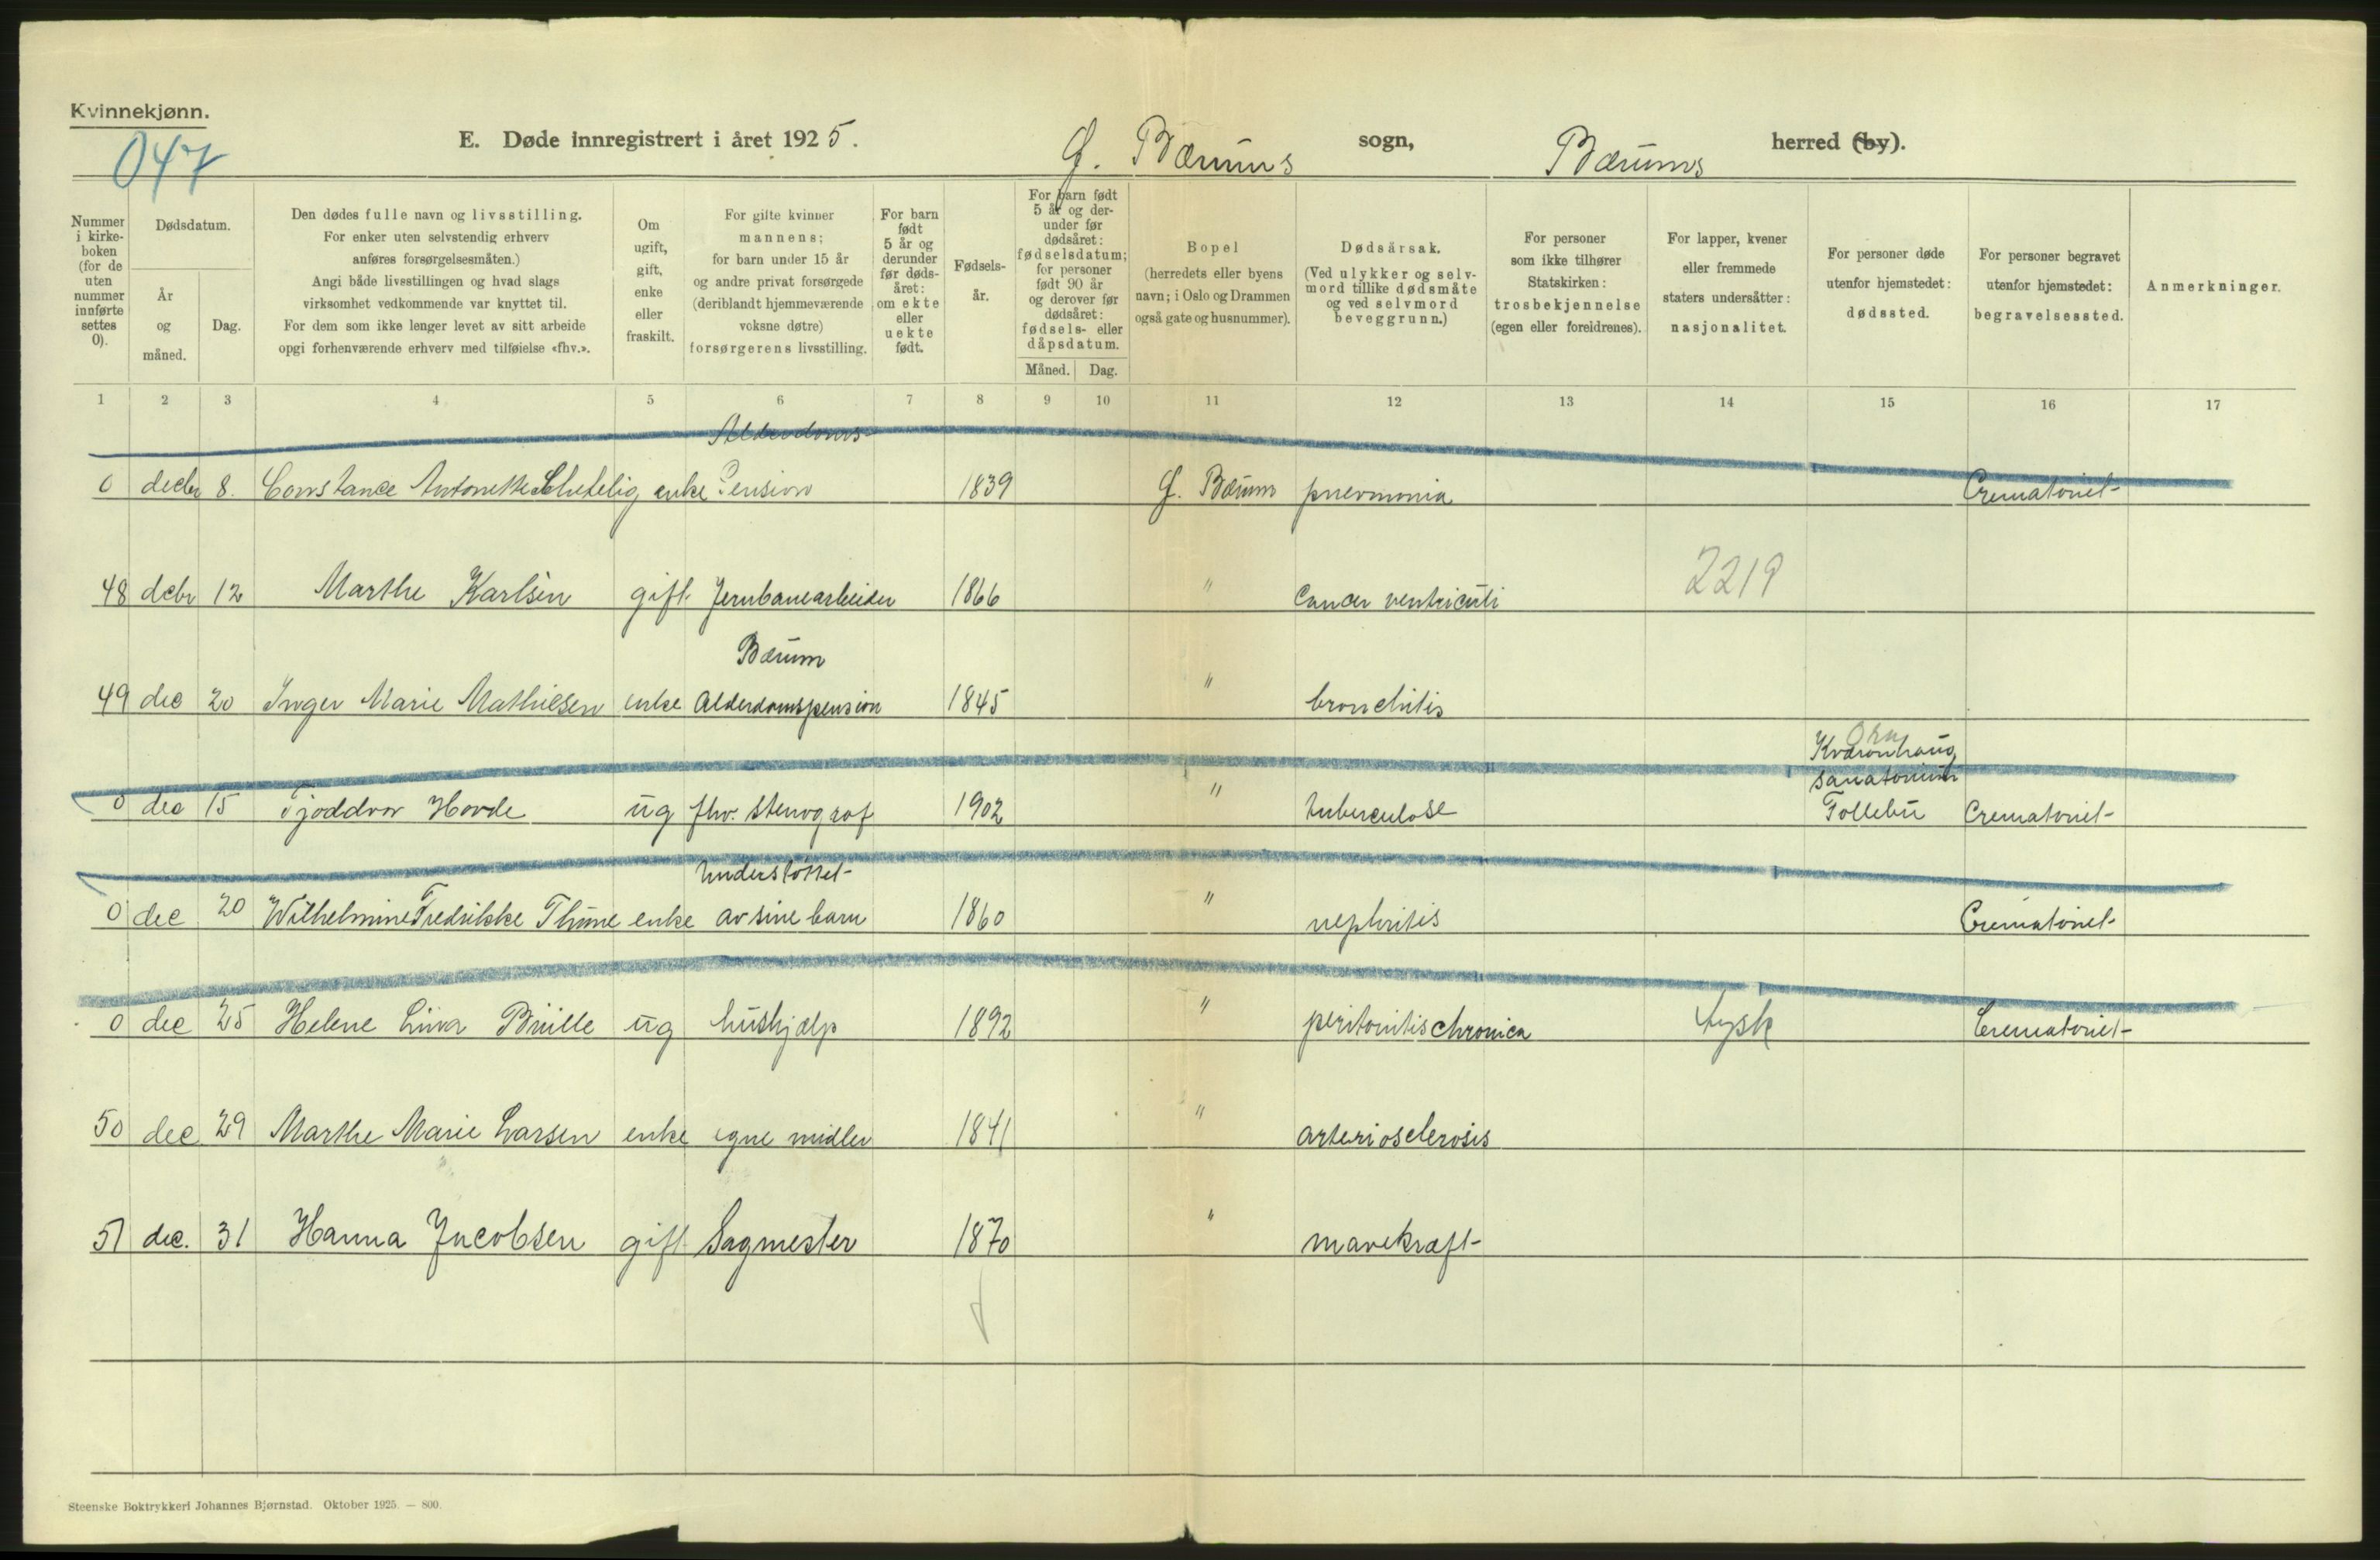 Kvinnekjønn.
047
E. Døde innregistrert i året 1925. Bærums sogn, Bærums herred (by).
Nummer i kirke-boken (for de uten nummer innførte settes 0).
Dødsdatum.
År og måned.
Dag.
Den dødes fulle navn og livsstilling.
For enker uten selvstendig erhverv
anføres forsørgelsesmåten.)
Angi både livsstillingen og hvad slags
virksomhet vedkommende var knyttet til.
For dem som ikke lenger levet av sitt arbeide
opgi forhenværende erhverv med tilføielse «fhv.».
Om ugift, gift, enke eller fraskilt.
For gifte kvinner
mannens;
for barn under 15 år
og andre privat forsørgede
(deriblandt hjemmeværende
voksne døtre)
forsørgerens livsstilling.
For barn født 5 år og derunder før døds-året: om ekte eller uekte født.
Fødsels-år.
For barn født
5 år og der-
under før
dødsåret:
fødselsdatum;
for personer
født 90 år
og derover før
dødsåret:
fødsels- eller
dåpsdatum.
Måned. Dag.
Bopel
(herredets eller byens
navn; i Oslo og Drammen
også gate og husnummer).
Dødsårsak.
(Ved ulykker og selv-
mord tillike dødsmåte
og ved selvmord
beveggrunn.)
For personer
som ikke tilhører
Statskirken:
trosbekjennelse
(egen eller foreldrenes).
For lapper, kvener
eller fremmede
staters undersåtter:
nasjonalitet.
For personer døde
utenfor hjemstedet:
dødssted.
For personer begravet
utenfor hjemstedet:
begravelsessted.
Anmerkninger.
1 2 3 4 5 6 7 8 9 10 11 12 13 14 15 16 17
Alderdoms-
0 decbr 8. Constance Antonette Schetelig enke Pension 1839 Bærum pneumonia Crematoriet
48 dcbr 12 Marthe Karlsen gift Jernbanearbeider 1866 " Cancer ventriculi 2219
Bærum
49 dec 20 Inger Marie Mathiesen enke Alderdomspension 1845 " bronchitis
Kvarnhaug
sanatorium
0 dec 15 Tjoddvor Hovde ug fhv. stenograf 1902 " tuberculose Follebu Crematoriet
Understøttet
0 dec 20 Wilhelmine Fredrikke Thune enke av sine barn 1860 " nephritis Crematoriet
0 dec 25 Helene ug hushjælp 1892 " peritonitis chronica tysk Crematoriet
50 dec 29 Marthe Marie Larsen enke egne midler 1841 " arteriosclerosis
51 dec. 31 Hanna Jacobsen gift Sagmester 1870 " mavekræft
Steenske Boktrykkeri Johannes Bjørnstad. Oktober 1925. — 800.